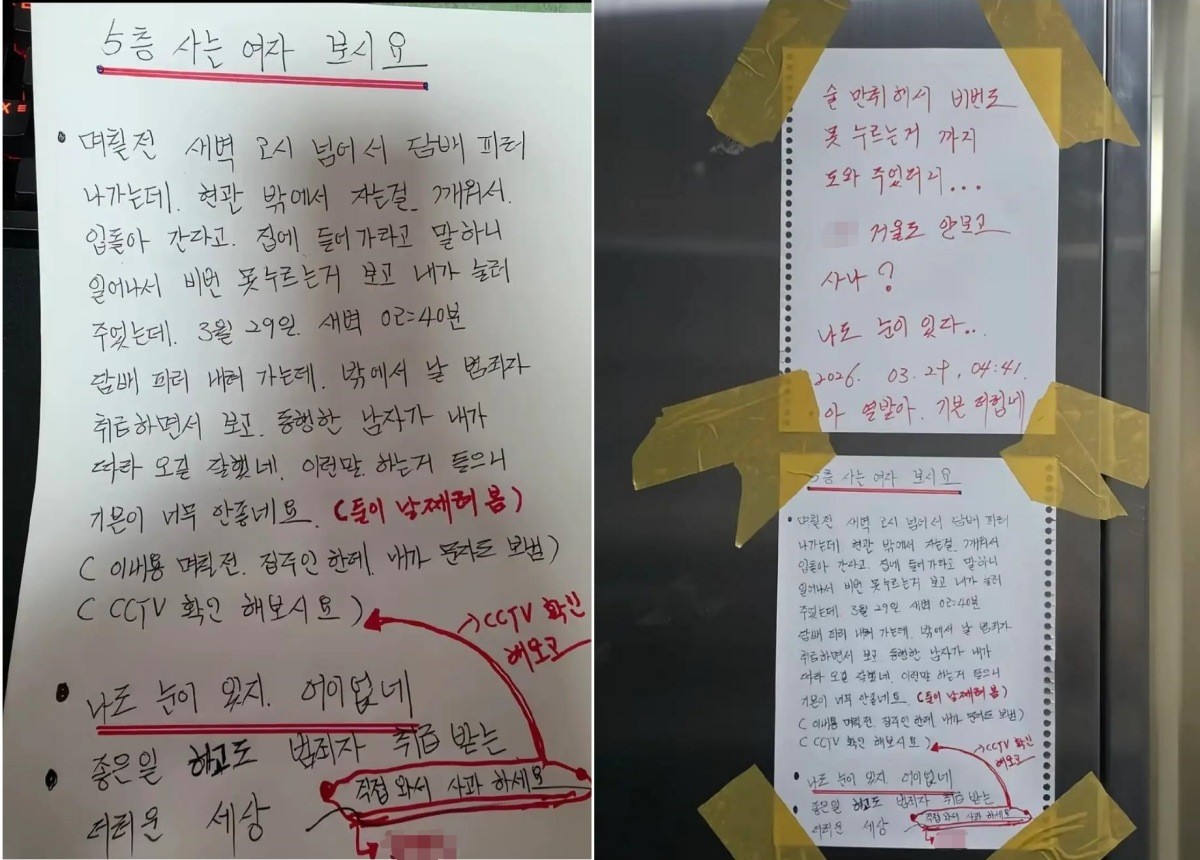 5층 사는 여자 보시요
• 며칠전 새벽 2시 넘어서 담배 피러
나가는데. 현관 밖에서 자는걸 깨워서.
입돌아 간다고. 집에 들어가라고 말하니
일어나서 비번 못누르는거 보고 내가 눌러
주었는데. 3월 29일. 새벽 02:40분
담배 피러 내려 가는데. 밖에서 날 범죄자
취급하면서 보고. 동행한 남자가 내가
따라 오길 잘했네. 이런말 하는거 들으니
기분이 너무 안좋네요. (둘이 날째려 봄)
( 이내용 며칠전. 집주인 한테. 내가 문자도 보냄)
( CCTV 확인 해보시요 )
→) CCTV 확인
해보고
• 나도 눈이 있지. 어이없네
• 좋은일 하고도 범죄자 취급 받는
더러운 세상
직접 와서 사과 하세요
술 만취해서 비번도
못 누르는거 까지
도와 주었더니...
거울도 안보고
사나?
나도 눈이 있다..
2026. 03. 29, 04:41.
아 열받아. 기분 더럽네
5층 사는 여자 보시요
• 며칠전 새벽 2시 넘어서 담배 피러
나가는데 현관 밖에서 자는걸 깨워서
입돌아 간다고. 집에 들어가라고 말하니
일어나서 비번 못누르는거 보고 내가 눌러
주었는데. 3월 29일 새벽 02:40분
담배 피러 내려 가는데. 밖에서 날 범죄자
취급하면서 보고 동행한 남자가 내가
따라 오길 잘했네. 이런말 하는거 들으니
기분이 너무 안좋네요. (둘이 날째려 봄)
( 이내용 며칠전. 집주인 한테. 내가 문자도 보냄)
( CCTV 확인 해보시요 )
→ CCTV 확인
해보고
• 나도 눈이 있지. 어이없네
• 좋은일 하고도 범죄자 취급 받는
더러운 세상
직접 와서 사과 하세요